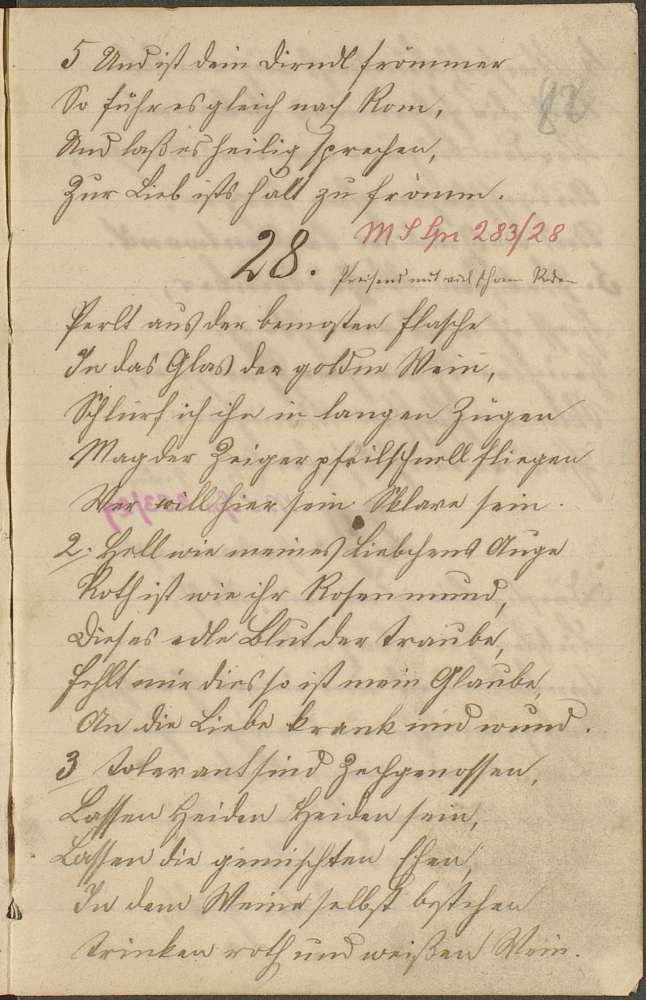 5 Und ist dein Dirndl frömmer
82
So führ es gleich nach Rom,
Und laß es heilig sprechen,
Zur Lieb ists halt zu fromm.
28. M S Gr 283/28
Preisend mit viel schönen Reden
Perlt aus der bemosten Flasche
In das Glas der goldne Wein,
Schlürf ich ihn in langen Zügen
Mag der Zeiger pfeilschnell fliegen
Wer will hier sein Sklave sein.
2. Hell wie meines Liebchens Auge
Roth ist wie ihr Rosenmund,
Dieses edle Blut der Traube,
Fehlt mir dies so ist mein Glaube,
An die Liebe krank und wund.
3 Tolerant sind Zechgenossen,
Lassen Heiden Heiden sein,
Lassen die gemischten Ehen,
In dem Weine selbst bestehen
Trinken roth und weißen Wein.